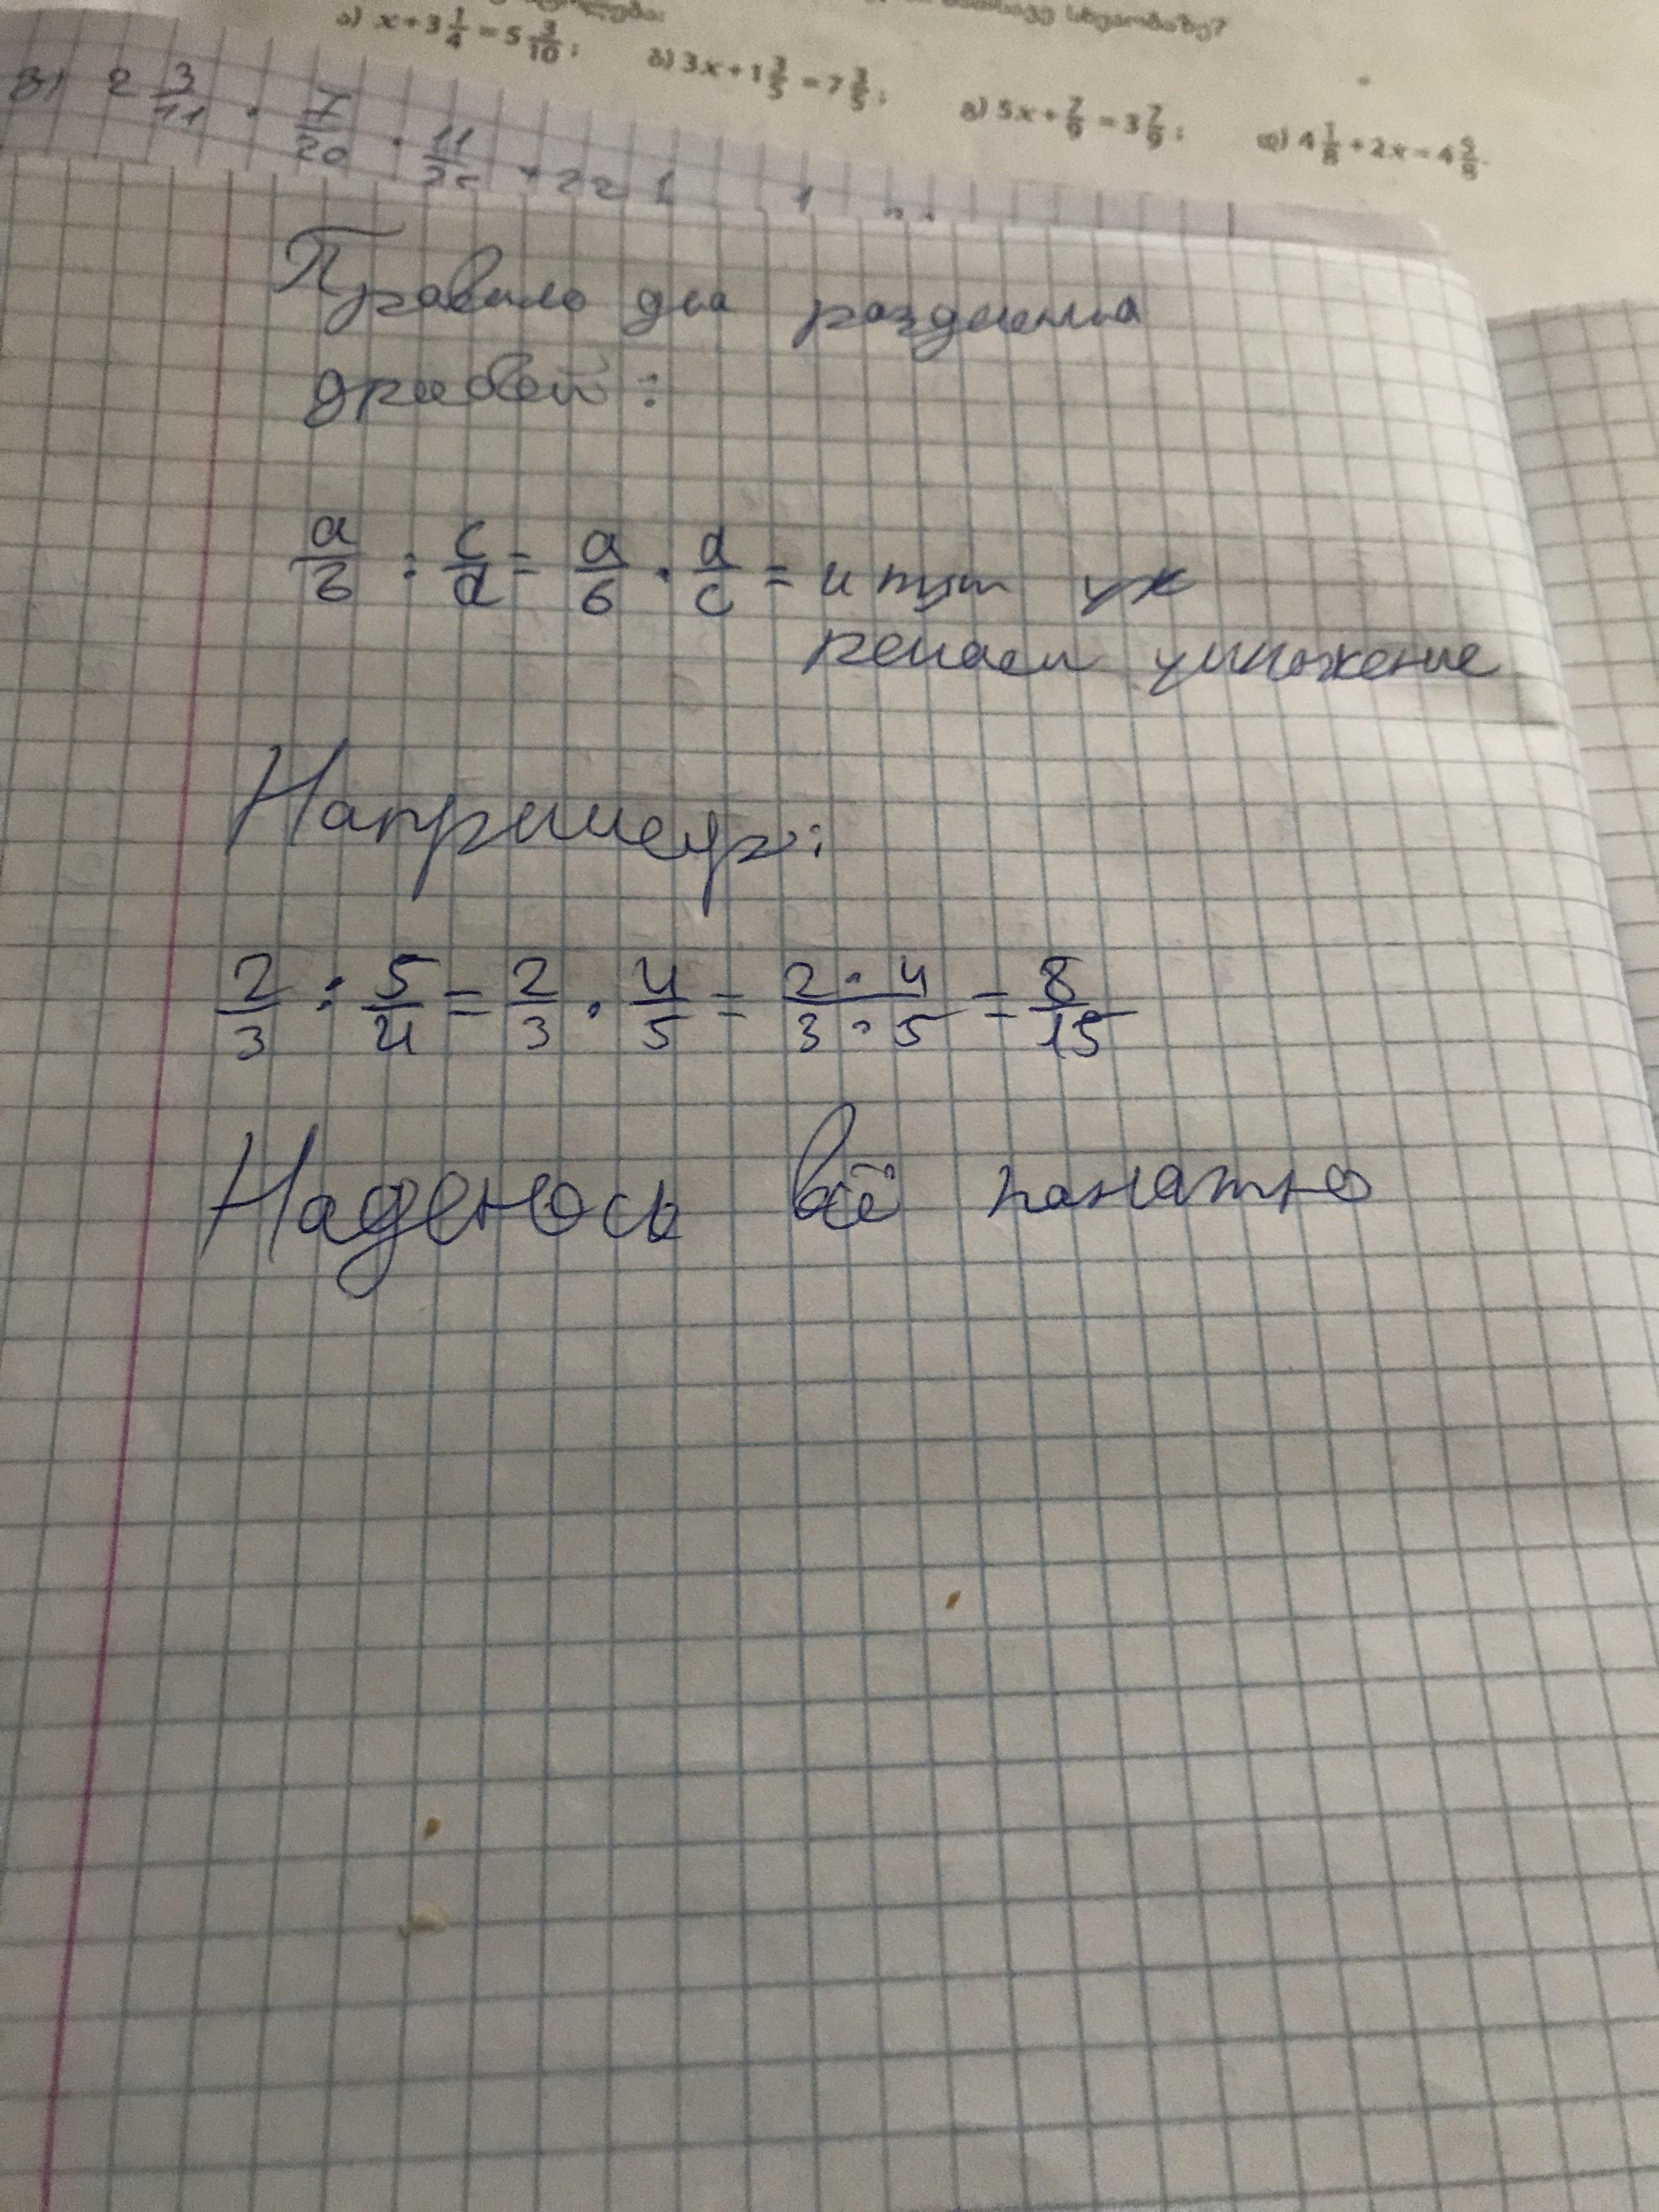 ა) x+3 1/4 = 5 3/10; ბ) 3x+1 3/5 = 7 3/5; გ) 5x+ 7/9 = 3 7/9; დ) 4 1/8 +2x=4 5/8.
2 3/11 · 7/20 · 11/25
Правило для разделения
дробей:
a/b : c/d = a/b · d/c = и тут уж
решаем умножение
Например:
2/3 : 5/4 = 2/3 · 4/5 = 2·4/3·5 = 8/15
Надеюсь всё понятно